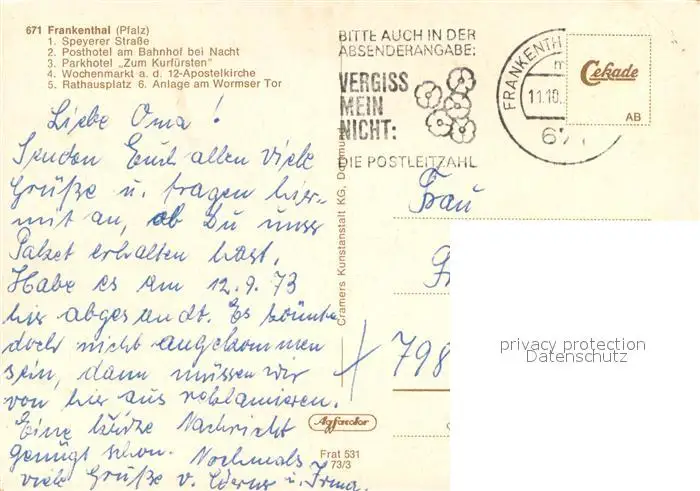 671 Frankenthal (Pfalz)
1. Speyerer Straße
2. Posthotel am Bahnhof bei Nacht
3. Parkhotel „Zum Kurfürsten"
4. Wochenmarkt a. d. 12-Apostelkirche
5. Rathausplatz 6. Anlage am Wormser Tor
Liebe Oma!
Senden Euch allen viele
Grüße u. fragen hier-
mit an, ob Du unser
Paket erhalten hast.
Habe es am 12.9.73
hier abgesandt. Es könnte
doch nicht angekommen
sein, dann müssen wir
von hier aus reklamieren.
Eine kurze Nachricht
genügt schon. Nochmals
viele Grüße v. u. Irma.
Cramers Kunstanstalt KG, Dortmund
BITTE AUCH IN DER
ABSENDERANGABE:
VERGISS
MEIN
NICHT:
DIE POSTLEITZAHL
FRANKENTH
11.10.
Cekade
AB
Frau
798
privacy protection
Datenschutz
Agfacolor
Frat 531
73/3